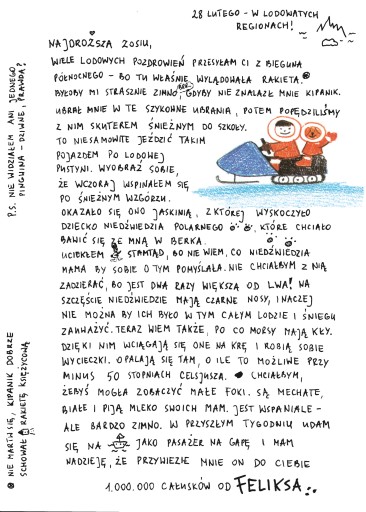 28 LUTEGO - W LODOWATYCH
REGIONACH!
NAJDROŻSZA ZOSIU,
WIELE LODOWYCH POZDROWIEŃ PRZESYŁAM CI Z BIEGUNA
PÓŁNOCNEGO - BO TU WŁAŚNIE WYLĄDOWAŁA RAKIETA.
BYŁOBY MI STRASZNIE ZIMNO, BRR.. GDYBY NIE ZNALAZŁ MNIE KIPANIK.
UBRAŁ MNIE W TE SZYKOWNE UBRANIA, POTEM POPĘDZILIŚMY
Z NIM SKUTEREM ŚNIEŻNYM DO SZKOŁY.
TO NIESAMOWITE JEŹDZIĆ TAKIM
POJAZDEM PO LODOWEJ
PUSTYNI. WYOBRAŹ SOBIE,
ŻE WCZORAJ WSPINAŁEM SIĘ
PO ŚNIEŻNYM WZGÓRZU.
OKAZAŁO SIĘ ONO JASKINIĄ, Z KTÓREJ WYSKOCZYŁO
DZIECKO NIEDŹWIEDZIA POLARNEGO, KTÓRE CHCIAŁO
BAWIĆ SIĘ ZE MNĄ W BERKA.
UCIEKŁEM STAMTĄD, BO NIE WIEM, CO NIEDŹWIEDZIA
MAMA BY SOBIE O TYM POMYŚLAŁA. NIE CHCIAŁBYM Z NIĄ
ZADZIERAĆ, BO JEST DWA RAZY WIĘKSZA OD LWA! NA
SZCZĘŚCIE NIEDŹWIEDZIE MAJĄ CZARNE NOSY, INACZEJ
NIE MOŻNA BY ICH BYŁO W TYM CAŁYM LODZIE I ŚNIEGU
ZAUWAŻYĆ. TERAZ WIEM TAKŻE, PO CO MORSY MAJĄ KŁY.
DZIĘKI NIM WCIĄGAJĄ SIĘ ONE NA KRĘ I ROBIĄ SOBIE
WYCIECZKI. OPALAJĄ SIĘ TAM, O ILE TO MOŻLIWE PRZY
MINUS 50 STOPNIACH CELSJUSZA. CHCIAŁBYM,
ŻEBYŚ MOGŁA ZOBACZYĆ MAŁE FOKI. SĄ MECHATE,
BIAŁE I PIJĄ MLEKO SWOICH MAM. JEST WSPANIALE -
ALE BARDZO ZIMNO. W PRZYSZŁYM TYGODNIU UDAM
SIĘ NA JAKO PASAŻER NA GAPĘ I MAM
NADZIEJĘ, ŻE PRZYWIEZIE MNIE ON DO CIEBIE
1.000.000 CAŁUSKÓW OD FELIKSA...
P.S. NIE WIDZIAŁEM ANI JEDNEGO
PINGWINA - DZIWNE, PRAWDA?
NIE MARTW SIĘ, KIPANIK DOBRZE
SCHOWAŁ RAKIETĘ KSIĘŻYCOWĄ